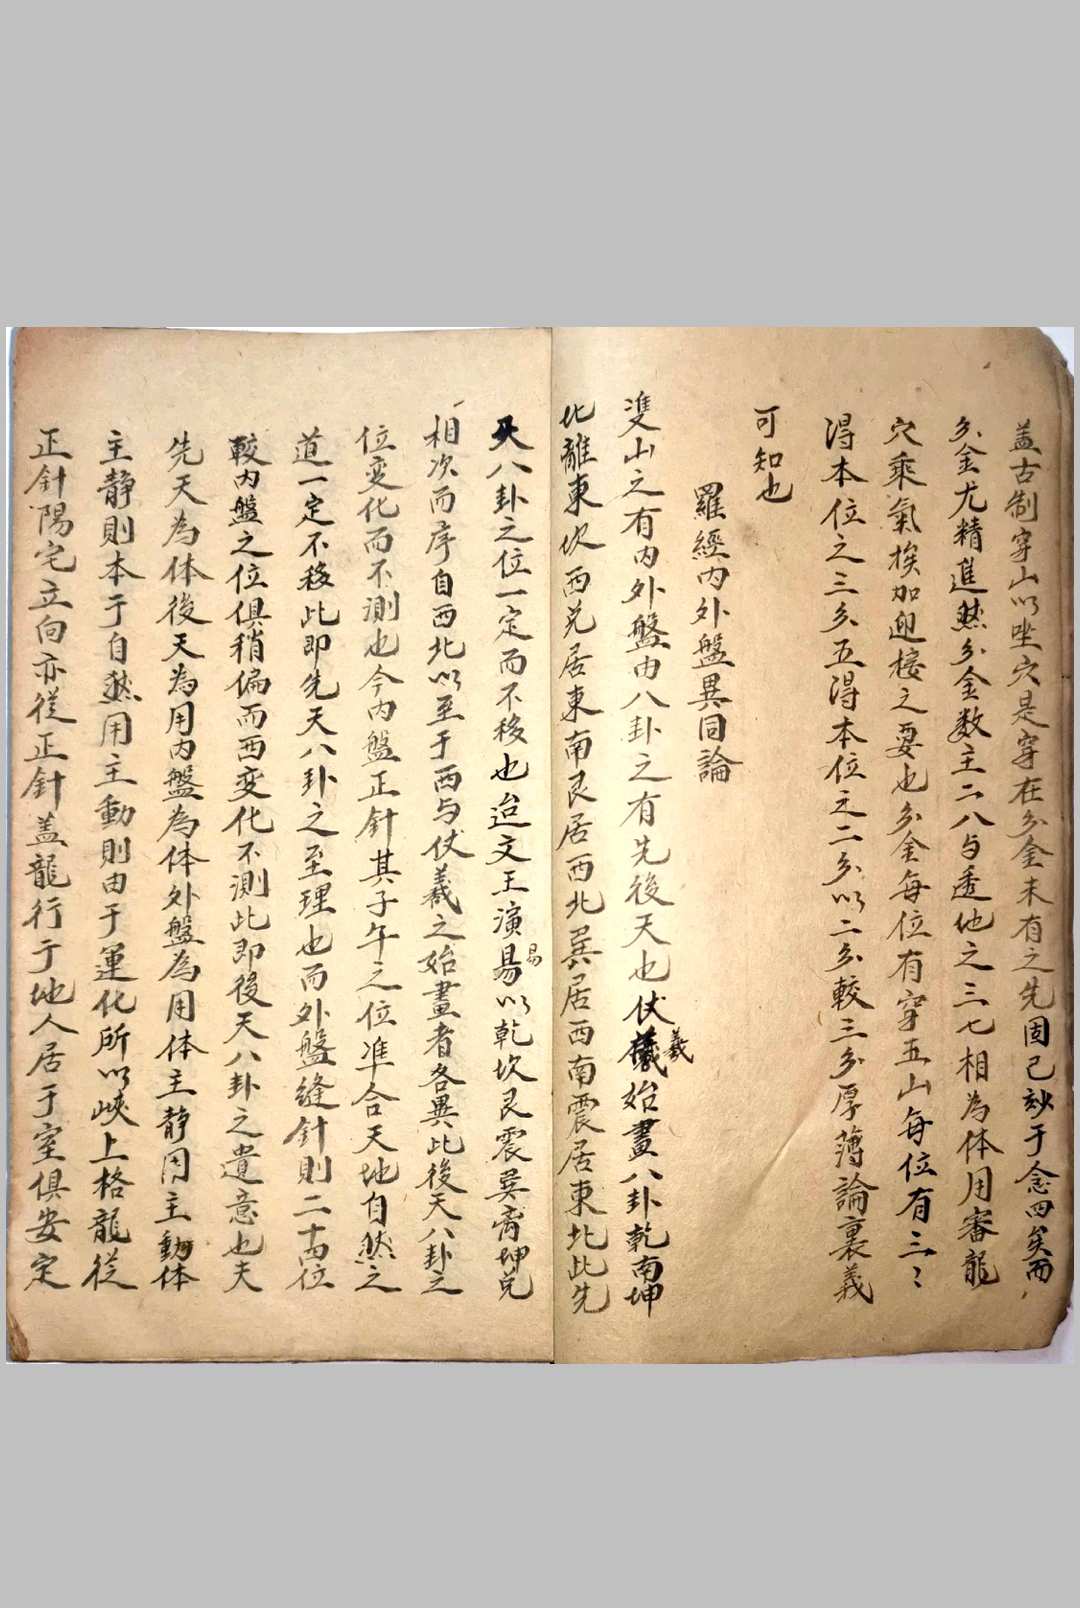 盖古制穿山以坐穴是穿在分金未有之先固已玅于念四矣而
分金尤精進然分金数主二八与透地之三七相為体用審龍
穴乘氣挨加迎接之要也分金每位有穿五山每位有三〻
得本位之三分五得本位之二分以二分較三分厚薄論裏義
可知也
羅經内外盤異同論
雙山之有内外盤由八卦之有先後天也伏羲始畫八卦乾南坤
北離東坎西兑居東南艮居西北巽居西南震居東北此先
天八卦之位一定而不移也迨文王演易以乾坎艮震巽离坤兑
相次而序自西北以至于西与伏羲之始畫者各異此後天八卦之
位変化而不測也今内盤正針其子午之位準合天地自然之
道一定不移此即先天八卦之至理也而外盤縫針則二十四位
較内盤之位俱稍偏而西変化不測此即後天八卦之遺意也夫
先天為体後天為用内盤為体外盤為用体主静用主動体
主静則本于自然用主動則由于運化所以峽上格龍從
正針陽宅立向亦從正針盖龍行于地人居于室俱安定